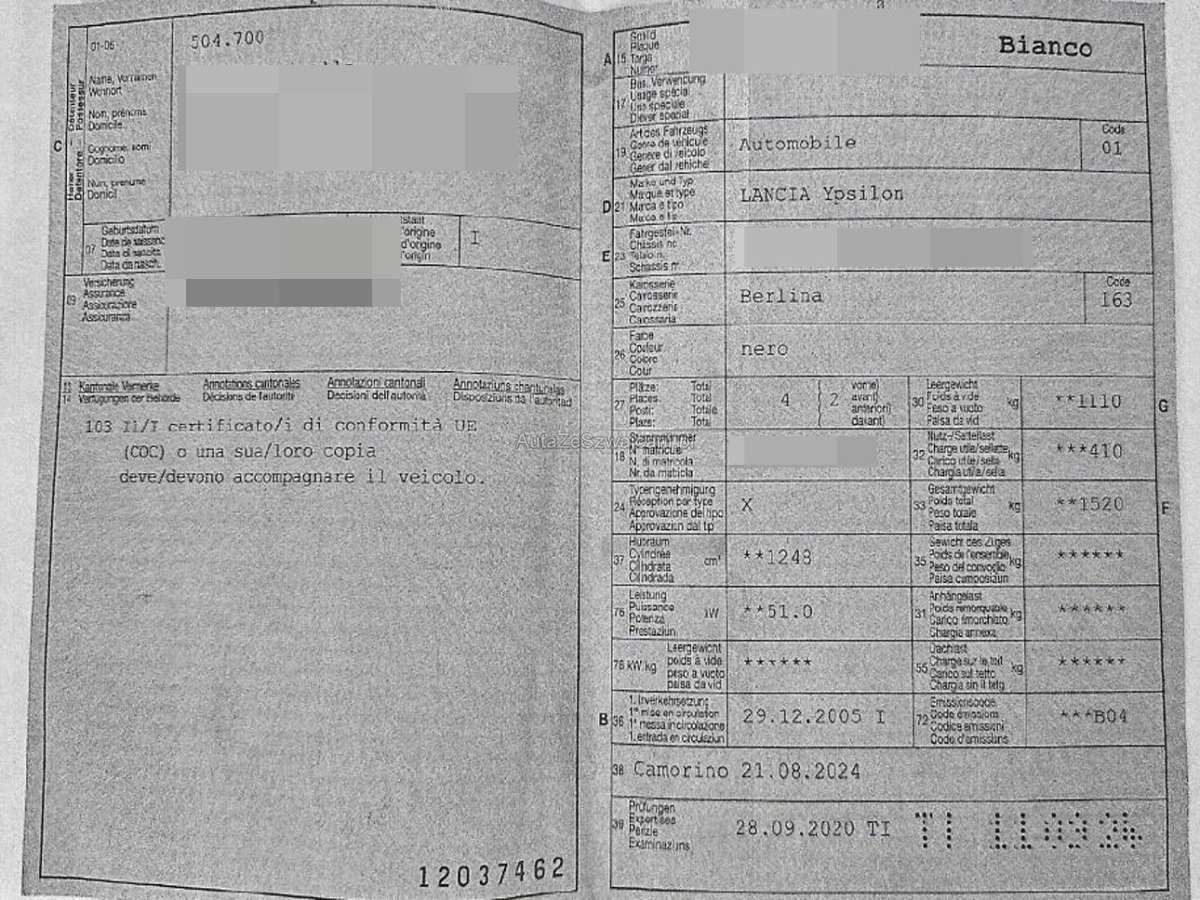 01-06
504.700
Name, Vornamen
Wohnort
Nom, prénoms
Domicile
Cognome, nomi
Domicilio
Num, prenums
Domicil
C
07
Geburtsdatum
Date de naissance
Data di nascita
Data da nasch.
d'origine
d'origine
d'origin
I
09
Versicherung
Assurance
Assicurazione
Assicuranza
13
14
Kantonale Vermerke
Verfügungen der Behörde
Annotations cantonales
Décisions de l'autorité
Annotazioni cantonali
Decisioni dell'autorità
Annotaziuns chantunalas
Disposiziuns da l'autoritad
103 Il/I certificato/i di conformità UE
(COC) o una sua/loro copia
deve/devono accompagnare il veicolo.
12037462
A
15
Schild
Plaque
Targa
Numer
Bianco
17
Bes. Verwendung
Usage spécial
Uso speciale
Diever spezial
19
Art des Fahrzeugs
Genre de véhicule
Genere di veicolo
Gener dal vehichel
Automobile
Code
01
D
21
Marke und Typ
Marque et type
Marca e tipo
Marca e tip
LANCIA Ypsilon
E
23
Fahrgestell-Nr.
Châssis no
Telaio n.
Schassis nr
25
Karosserie
Carosserie
Carozzeria
Carossaria
Berlina
Code
163
26
Farbe
Couleur
Colore
Colur
nero
27
Plätze: Total
Places: Total
Posti: Totale
Plazs: Total
4 ( 2
vorne)
avant)
anteriori)
davant)
30
Leergewicht
Poids à vide
Peso a vuoto
Paisa da vid
kg
**1110
G
18
Stammnummer
N° matricule
N. di matricola
Nr. da matricla
32
Nutz-/Sattellast
Charge utile/sellette
Carico utile/sella
Chargia utila/sella
kg
***410
24
Typengenehmigung
Réception par type
Approvazione del tipo
Approvaziun dal tip
X
33
Gesamtgewicht
Poids total
Peso totale
Paisa totala
kg
**1520
F
37
Hubraum
Cylindrée
Cilindrata
Cilindrada
cm³
**1248
35
Gewicht des Zuges
Poids de l'ensemble
Peso del convoglio
Paisa cumposiziun
kg
******
76
Leistung
Puissance
Potenza
Prestaziun
kW
**51.0
31
Anhängelast
Poids remorquable
Carico rimorchiato
Chargia annexa
kg
******
78 kW/kg
Leergewicht
poids à vide
peso a vuoto
paisa da vid
******
55
Dachlast
Charge sur le toit
Carico sul tetto
Chargia sin il tetg
kg
******
B
36
1. Inverkehrsetzung
1re mise en circulation
1a messa in circolazione
1. entrada en circulaziun
29.12.2005 I
72
Emissionscode
Code émissions
Codice emissioni
Code d'emissiuns
***B04
38
Camorino 21.08.2024
39
Prüfungen
Expertises
Perizie
Examinaziuns
28.09.2020 TI
TI 11 03 24